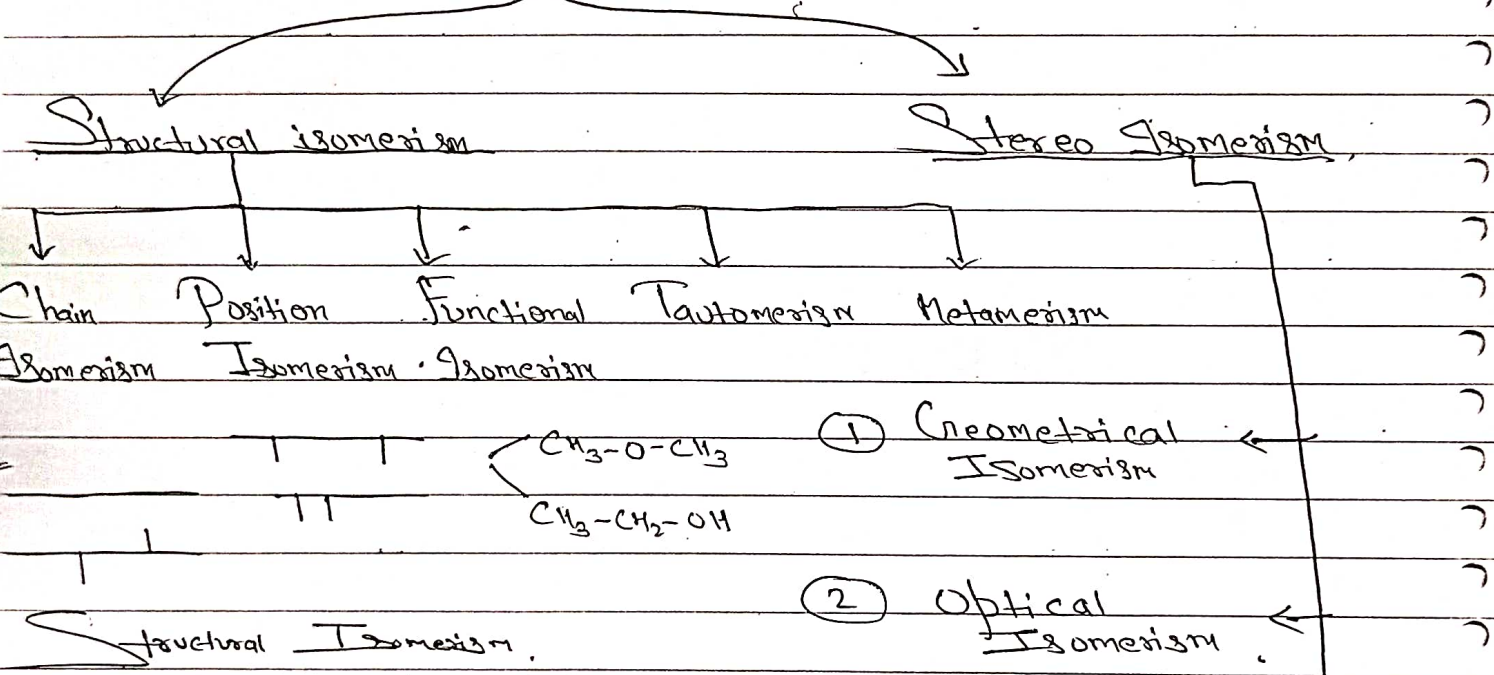 Structural isomerism
Stereo Isomerism,
Chain Position Functional Tautomerism Metamerism
Isomerism Isomerism Isomerism
CH3-O-CH3
CH3-CH2-OH
① Geometrical
Isomerism
② Optical
Isomerism.
Structural Isomerism.